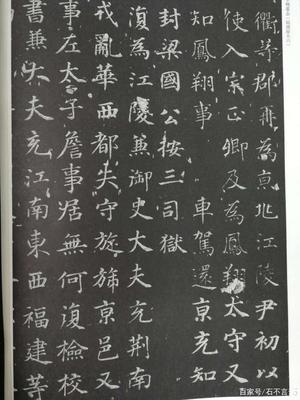 衢等郡再為京兆江陵尹初以
使入宗正卿及為鳳翔太守又
知鳳翔事 車駕還京充知
封梁國公按三司獄
復為江陵兼御史大夫充荆南
戎亂華西都失守旋旆京邑又
事左太子詹事居無何復檢校
書兼大夫充江南東西福建等
百家号/石不言